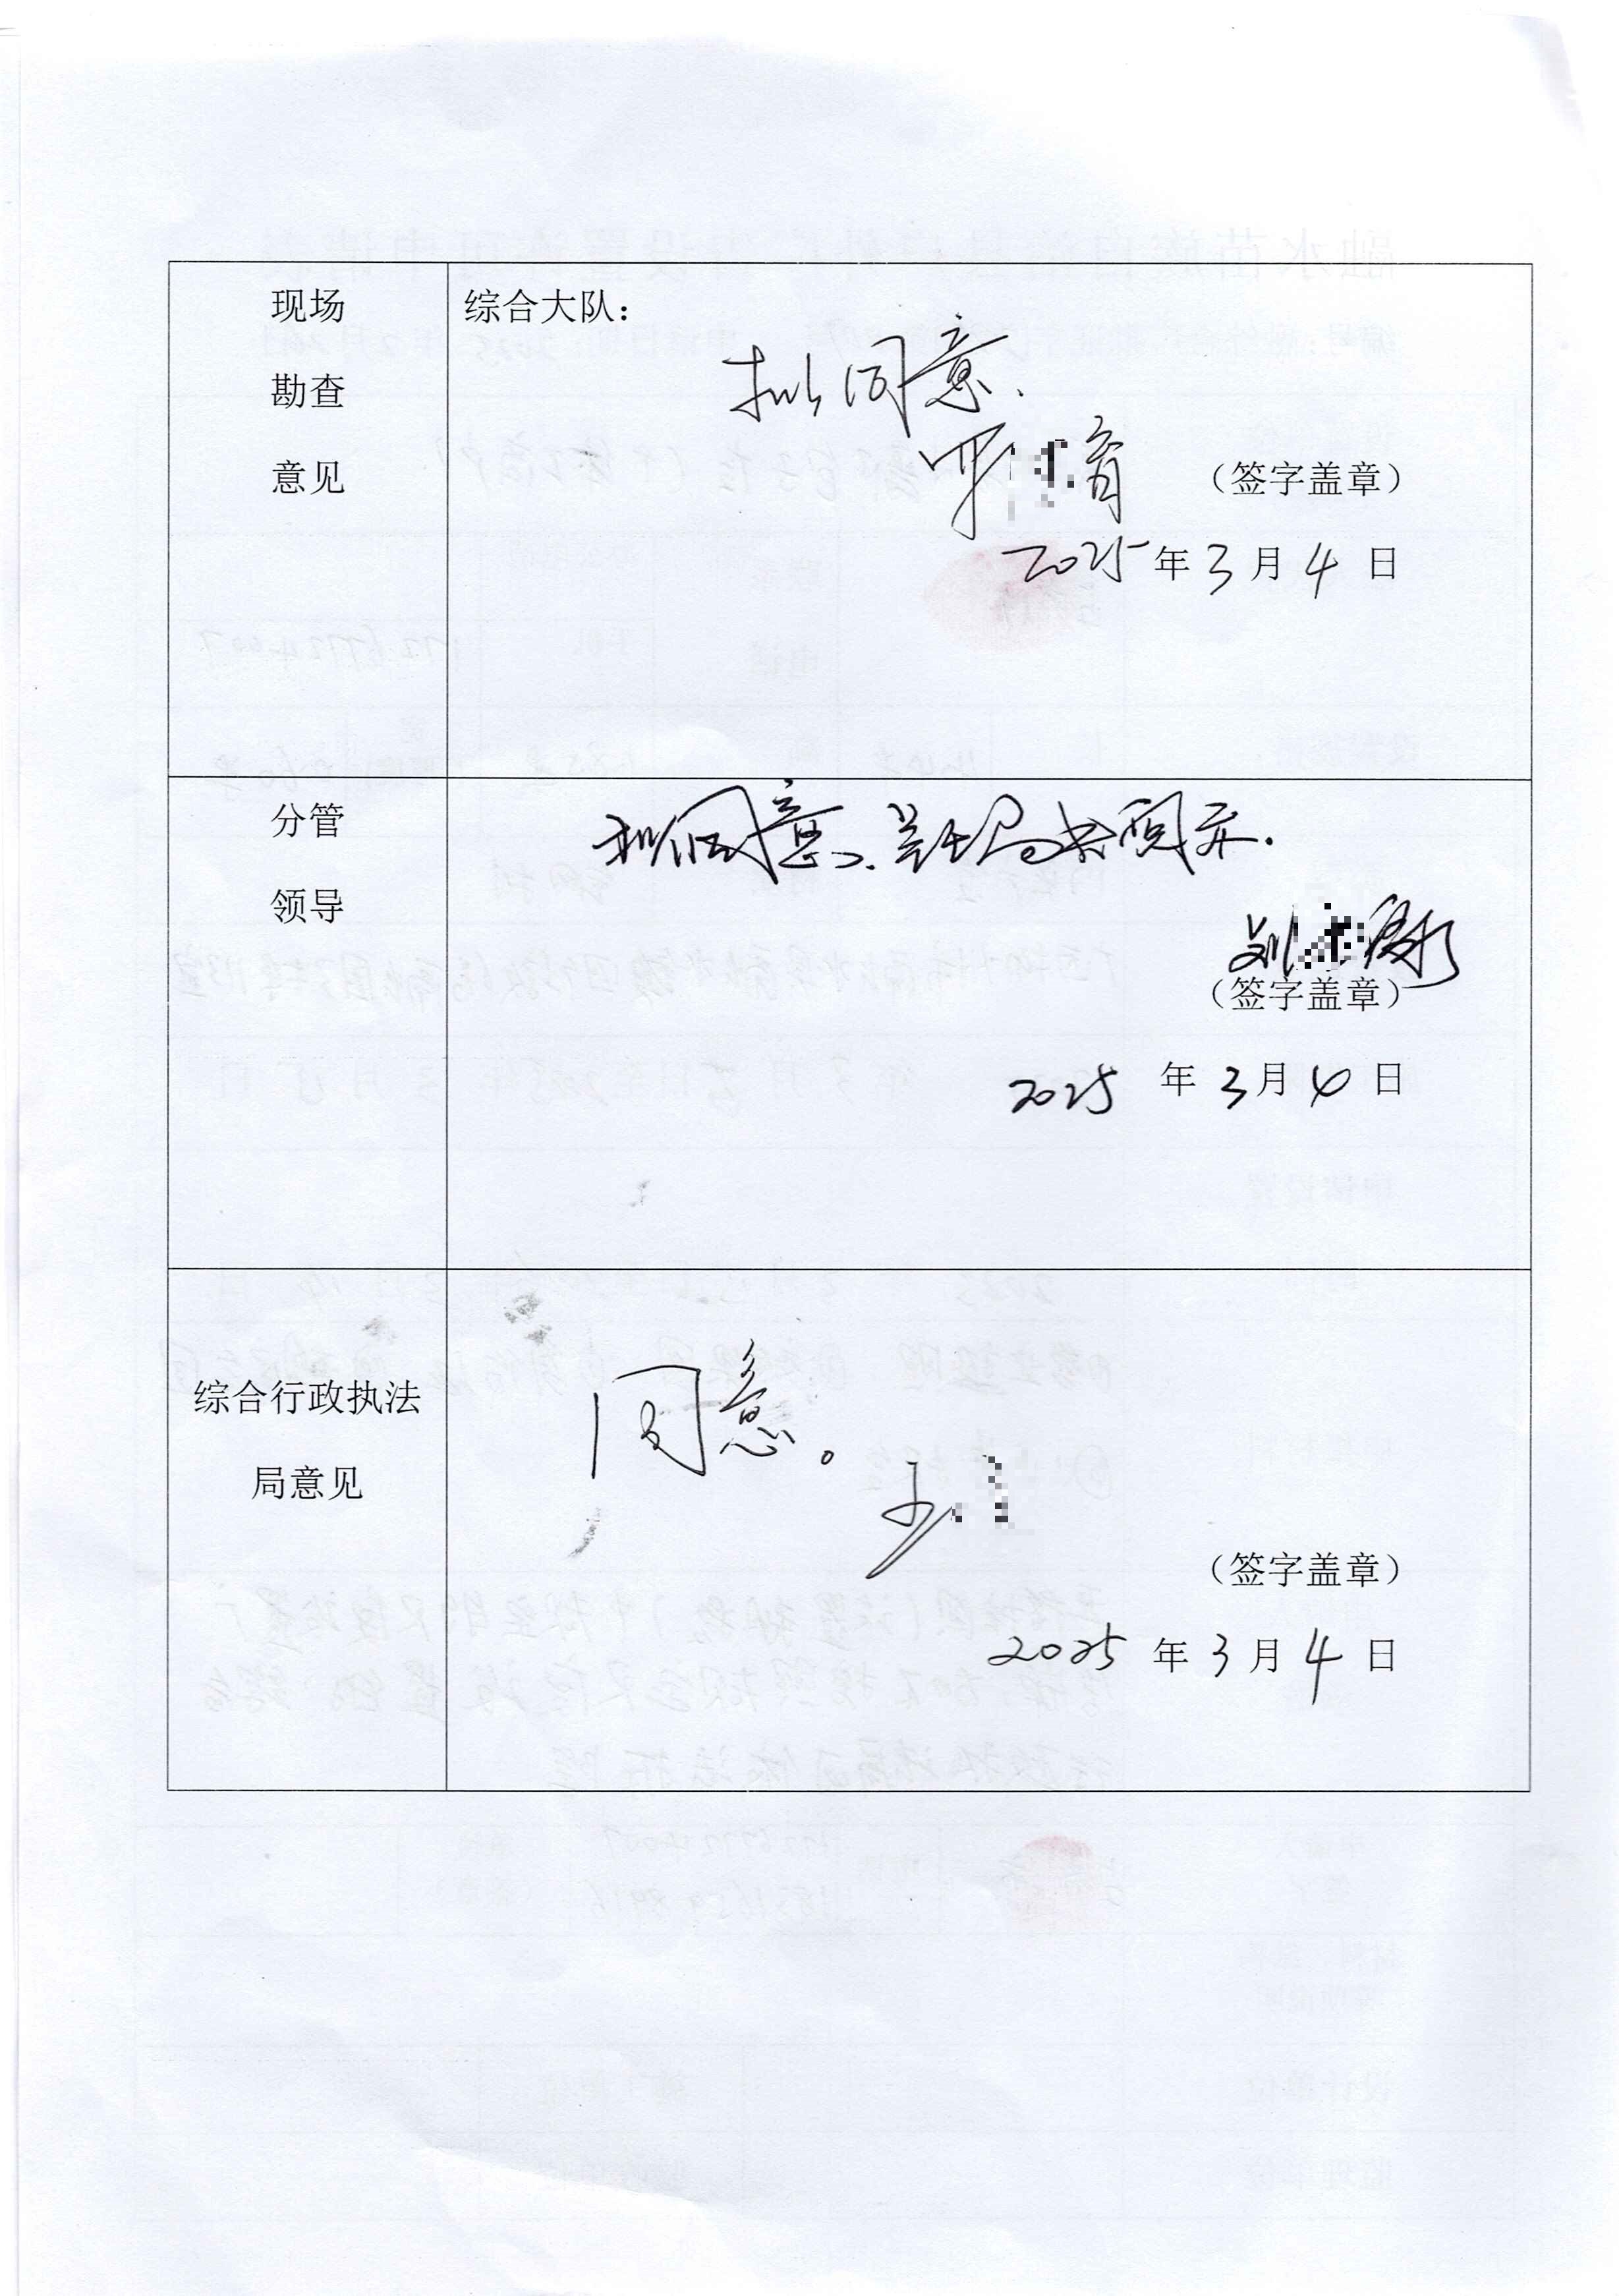 现场
勘查
意见
综合大队：
拟同意.
罗 育
（签字盖章）
2025年3月4日
分管
领导
拟同意、呈 局长阅示.
刘
（签字盖章）
2025 年 3月4日
综合行政执法
局意见
同意。
（签字盖章）
2025 年 3 月 4 日